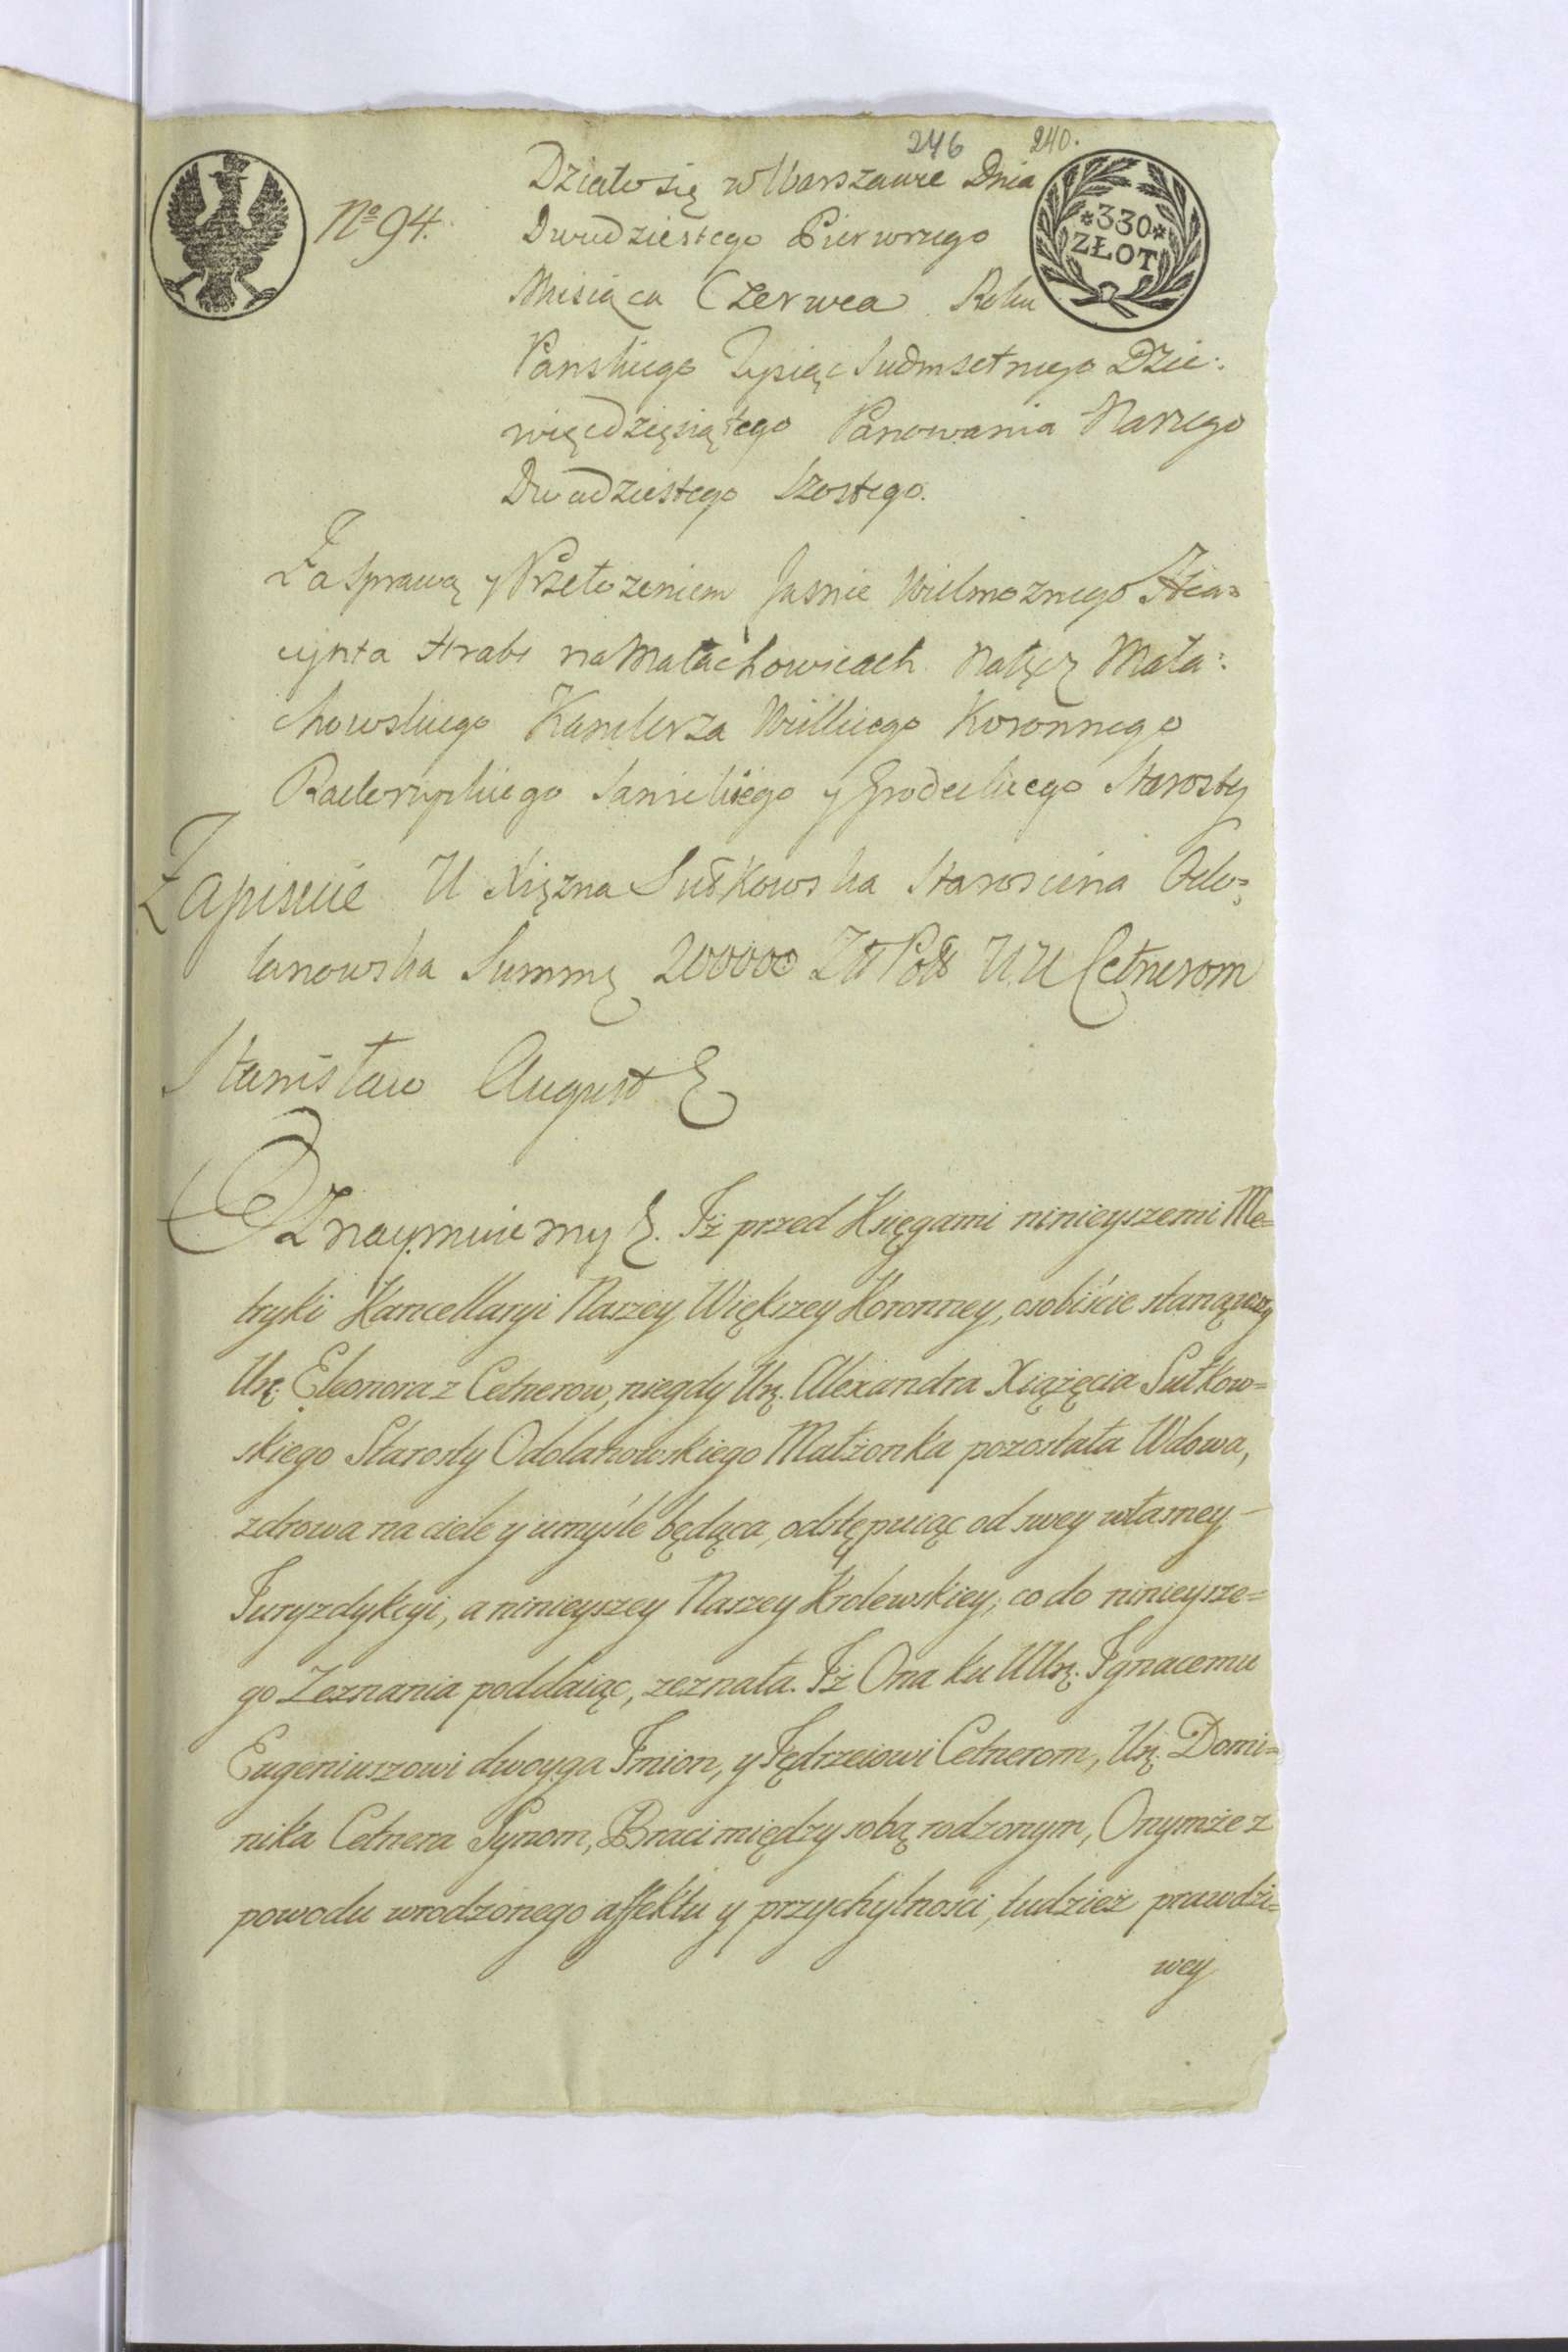 246 240.
Działo się w Warszawie Dnia
*330*
ZŁOT
No 94.
Dwudziestego Pierwszego
Miesiąca Czerwca Roku
Pańskiego Tysiąc Siedmsetnego Dzie:
więćdziesiątego Panowania Naszego
Dwudziestego Szostego.
Za Sprawą y Przełozeniem Jasnie Wielmoznego Hia=
cynta Hrabi na Małachowicach Nałęcz Mała:
chowskiego Kanclerza Wielkiego Koronnego
Radoszyckiego Sanickiego y Grodeckiego Starosty
Zapisuie U Xięzna Sułkowska Starościna Odo=
lanowska Summę 200000 Zł Pols UU Cetnerom
Stanisław August &
Oznaymuiemy &. Iż przed Księgami ninieyszemi Me=
tryki Kancellaryi Naszey Większey Koronney, osobiście stanąwszy
Urę. Eleonora z Cetnerow, niegdy Urę. Alexandra Xiążęcia Sułkow=
skiego Starosty Odolanowskiego Małżonka pozostała Wdowa,
zdrowa na ciele y umyśle będąca, odstępuiąc od swey własney –
Juryzdykcyi, a ninieyszey Naszey Krolewskiey, co do ninieysze=
go Zeznania poddaiąc, zeznała. Iż Ona ku UUrę. Ignacemu
Eugeniuszowi dwoyga Imion, y Jędrzeiowi Cetnerom, Urę. Domi=
nika Cetnera Synom, Braci między sobą rodzonym, Onymże z
powodu wrodzonego affektu y przychylności, tudzież prawdzi=
wey